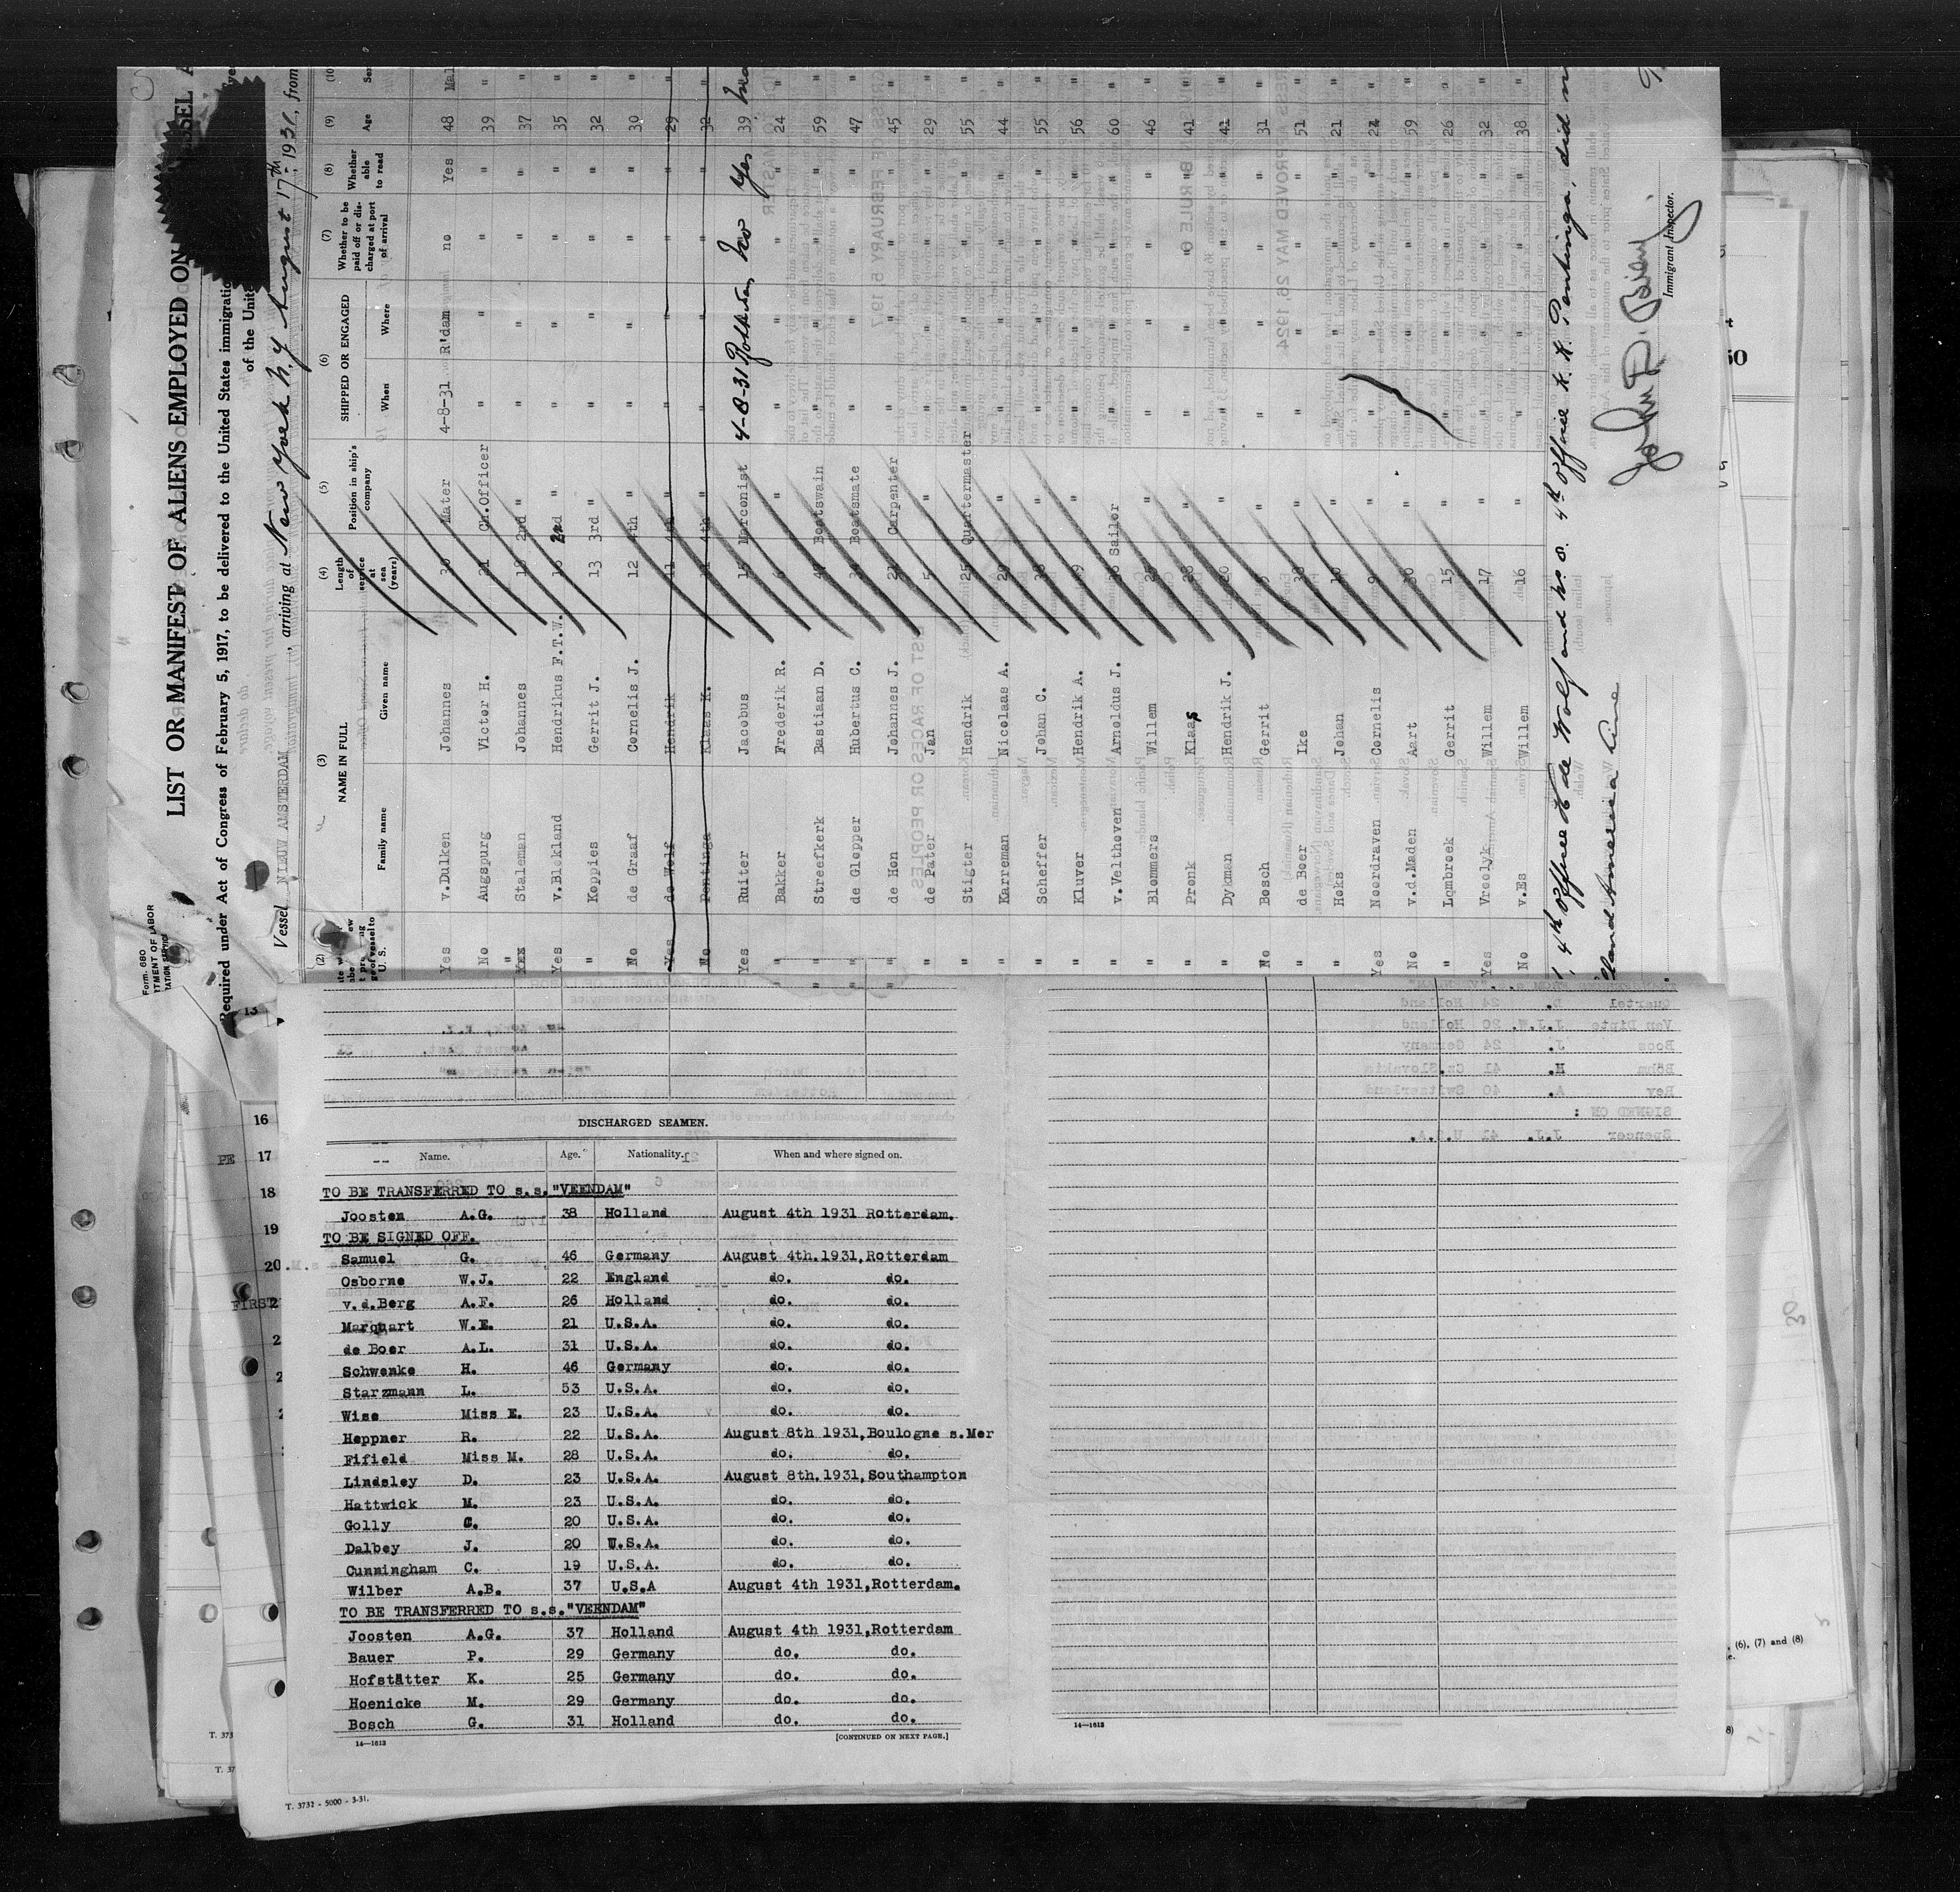 LIST OR MANIFEST OF ALIENS EMPLOYED ON
Required under Act of Congress of February 5, 1917, to be delivered to the United States immigration
of the Unite
Vessel NIEUW AMSTERDAM, arriving at New York N.Y August 17th 1931, from
Form 680
(2) (3) (4) (5) (6) (7) (8) (9) (10
NAME IN FULL
Family name Given name
Length of service at sea (years)
Position in ship's company
SHIPPED OR ENGAGED
When Where
Whether to be paid off or discharged at port of arrival
Whether able to read
Age
Sex
Yes v.Dulken Johannes 30 Mater 4-8-31 R'dam no Yes 48 Mal
No Augspurg Victor H. 21 Ch.Officer " " " " 39 "
" Staleman Johannes 18 2nd " " " " " 37 "
Yes v.Blokland Hendrikus F.T.W. 16 2nd " " " " " 35 "
" Koppies Gerrit J. 13 3rd " " " " " 32 "
No de Graaf Cornelis J. 12 4th " " " " " 30 "
Yes de Wolf Hendrik 11 4th " " " " " 29 "
No Pentinga Klaas K. 11 4th " " " " " 32 "
Yes Ruiter Jacobus 15 Marconist 4-8-31 Rotterdam No Yes 39
" Bakker Frederik R. 6 " " " " " 24 "
" Streefkerk Bastiaan D. 47 Boatswain " " " " 59 "
" de Glopper Hubertus C. 34 Boatsmate " " " " 47 "
" de Hon Johannes J. 21 Carpenter " " " " 45 "
" de Pater Jan 5 " " " " " 29 "
" Stigter Hendrik 25 Quartermaster " " " " 55 "
" Karreman Nicolaas A. 29 " " " " " 44 "
" Scheffer Johan C. 38 " " " " " 55 "
" Kluver Hendrik A. 39 " " " " " 56 "
" v.Velthoven Arnoldus J. 36 Sailor " " " " 60 "
" Blommers Willem 25 " " " " " 46 "
" Pronk Klaas 28 " " " " " 41 "
" Dykman Hendrik J. 20 " " " " " 41 "
No Bosch Gerrit 9 " " " " " 31 "
" de Boer Ike 38 " " " " " 51 "
" Hoks Johan 10 " " " " " 21 "
Yes Noordraven Cornelis 9 " " " " " 24 "
No v.d.Maden Aart 30 " " " " " 59 "
" Lombroek Gerrit 15 " " " " " 26 "
Yes Vroolyk Willem 17 " " " " " 32 "
No v.Es Willem 16 " " " " " 38 "
4th Officer H de Wolf and no 8. 4th Officer K. K. Pentinga, did
land America Line
John P. Brien
Immigrant Inspector.
DISCHARGED SEAMEN.
Name. Age. Nationality. When and where signed on.
TO BE TRANSFERRED TO s.s."VEENDAM"
Joosten A.G. 38 Holland August 4th 1931 Rotterdam.
TO BE SIGNED OFF.
Samuel G. 46 Germany August 4th.1931,Rotterdam
Osborne W.J. 22 England do. do.
v.d.Berg A.F. 26 Holland do. do.
Marquart W.E. 21 U.S.A. do. do.
de Boer A.L. 31 U.S.A. do. do.
Schwenke H. 46 Germany do. do.
Starzmann L. 53 U.S.A. do. do.
Wise Miss E. 23 U.S.A. do. do.
Heppner R. 22 U.S.A. August 8th 1931,Boulogne s.Mer
Fifield Miss M. 28 U.S.A. do. do.
Lindsley D. 23 U.S.A. August 8th.1931,Southampton
Hattwick M. 23 U.S.A. do. do.
Golly C. 20 U.S.A. do. do.
Dalbey J. 20 U.S.A. do. do.
Cunningham C. 19 U.S.A. do. do.
Wilber A.B. 37 U.S.A August 4th 1931,Rotterdam.
TO BE TRANSFERRED TO s.s."VEENDAM"
Joosten A.G. 37 Holland August 4th 1931,Rotterdam
Bauer P. 29 Germany do. do.
Hofstätter K. 25 Germany do. do.
Hoenicke M. 29 Germany do. do.
Bosch G. 31 Holland do. do.
14—1613 [CONTINUED ON NEXT PAGE.]
14—1613
T. 3732 - 5000 - 3-31.
13
16
PE 17
18
19
20
FIRST
, (6), (7) and (8)
T. 373
T. 37